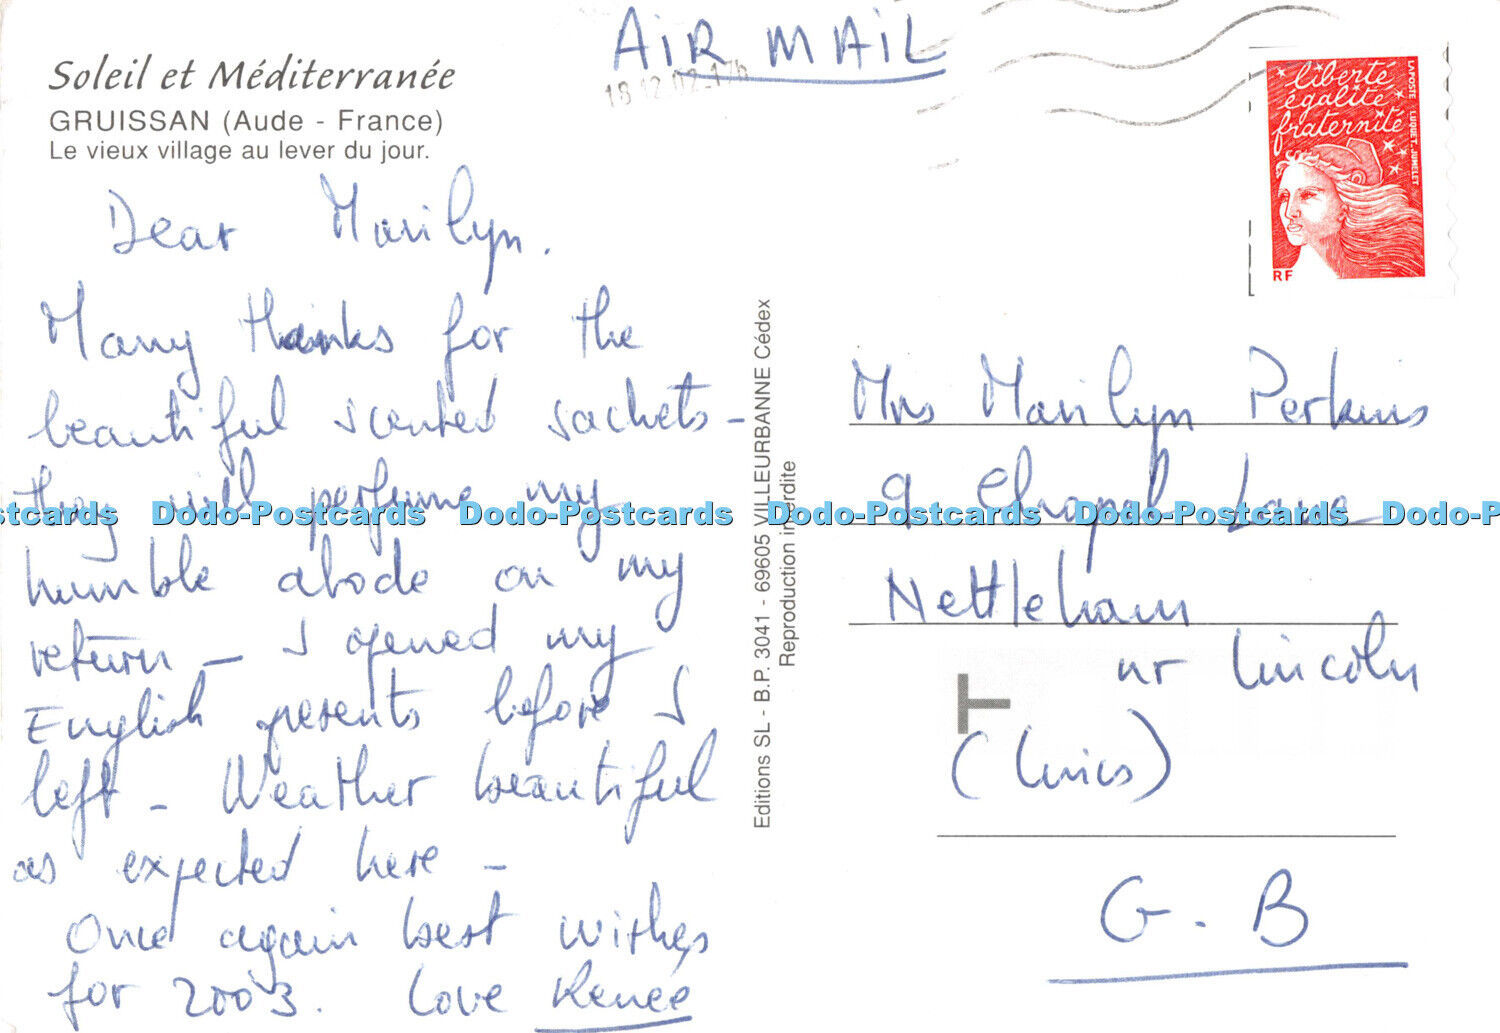 AIR MAIL
18 12 02 17h
Soleil et Méditerranée
GRUISSAN (Aude - France)
Le vieux village au lever du jour.
liberté
égalité
fraternité
LA POSTE LUQUET. JUMELET
RF
Dear Marilyn.
Many thanks for the
beautiful scented sachets -
they will perfume my
humble abode on my
return - I opened my
English presents before I
left - Weather beautiful
as expected here -
Once again best wishes
for 2003. Love Renée
Editions SL - B.P. 3041 - 69605 VILLEURBANNE Cédex
Reproduction interdite
Mrs Marilyn Perkins
9 Chapel Lane
Nettleham
nr Lincoln
(Lincs)
G.B
T
Dodo-Postcards Dodo-Postcards Dodo-Postcards Dodo-Postcards